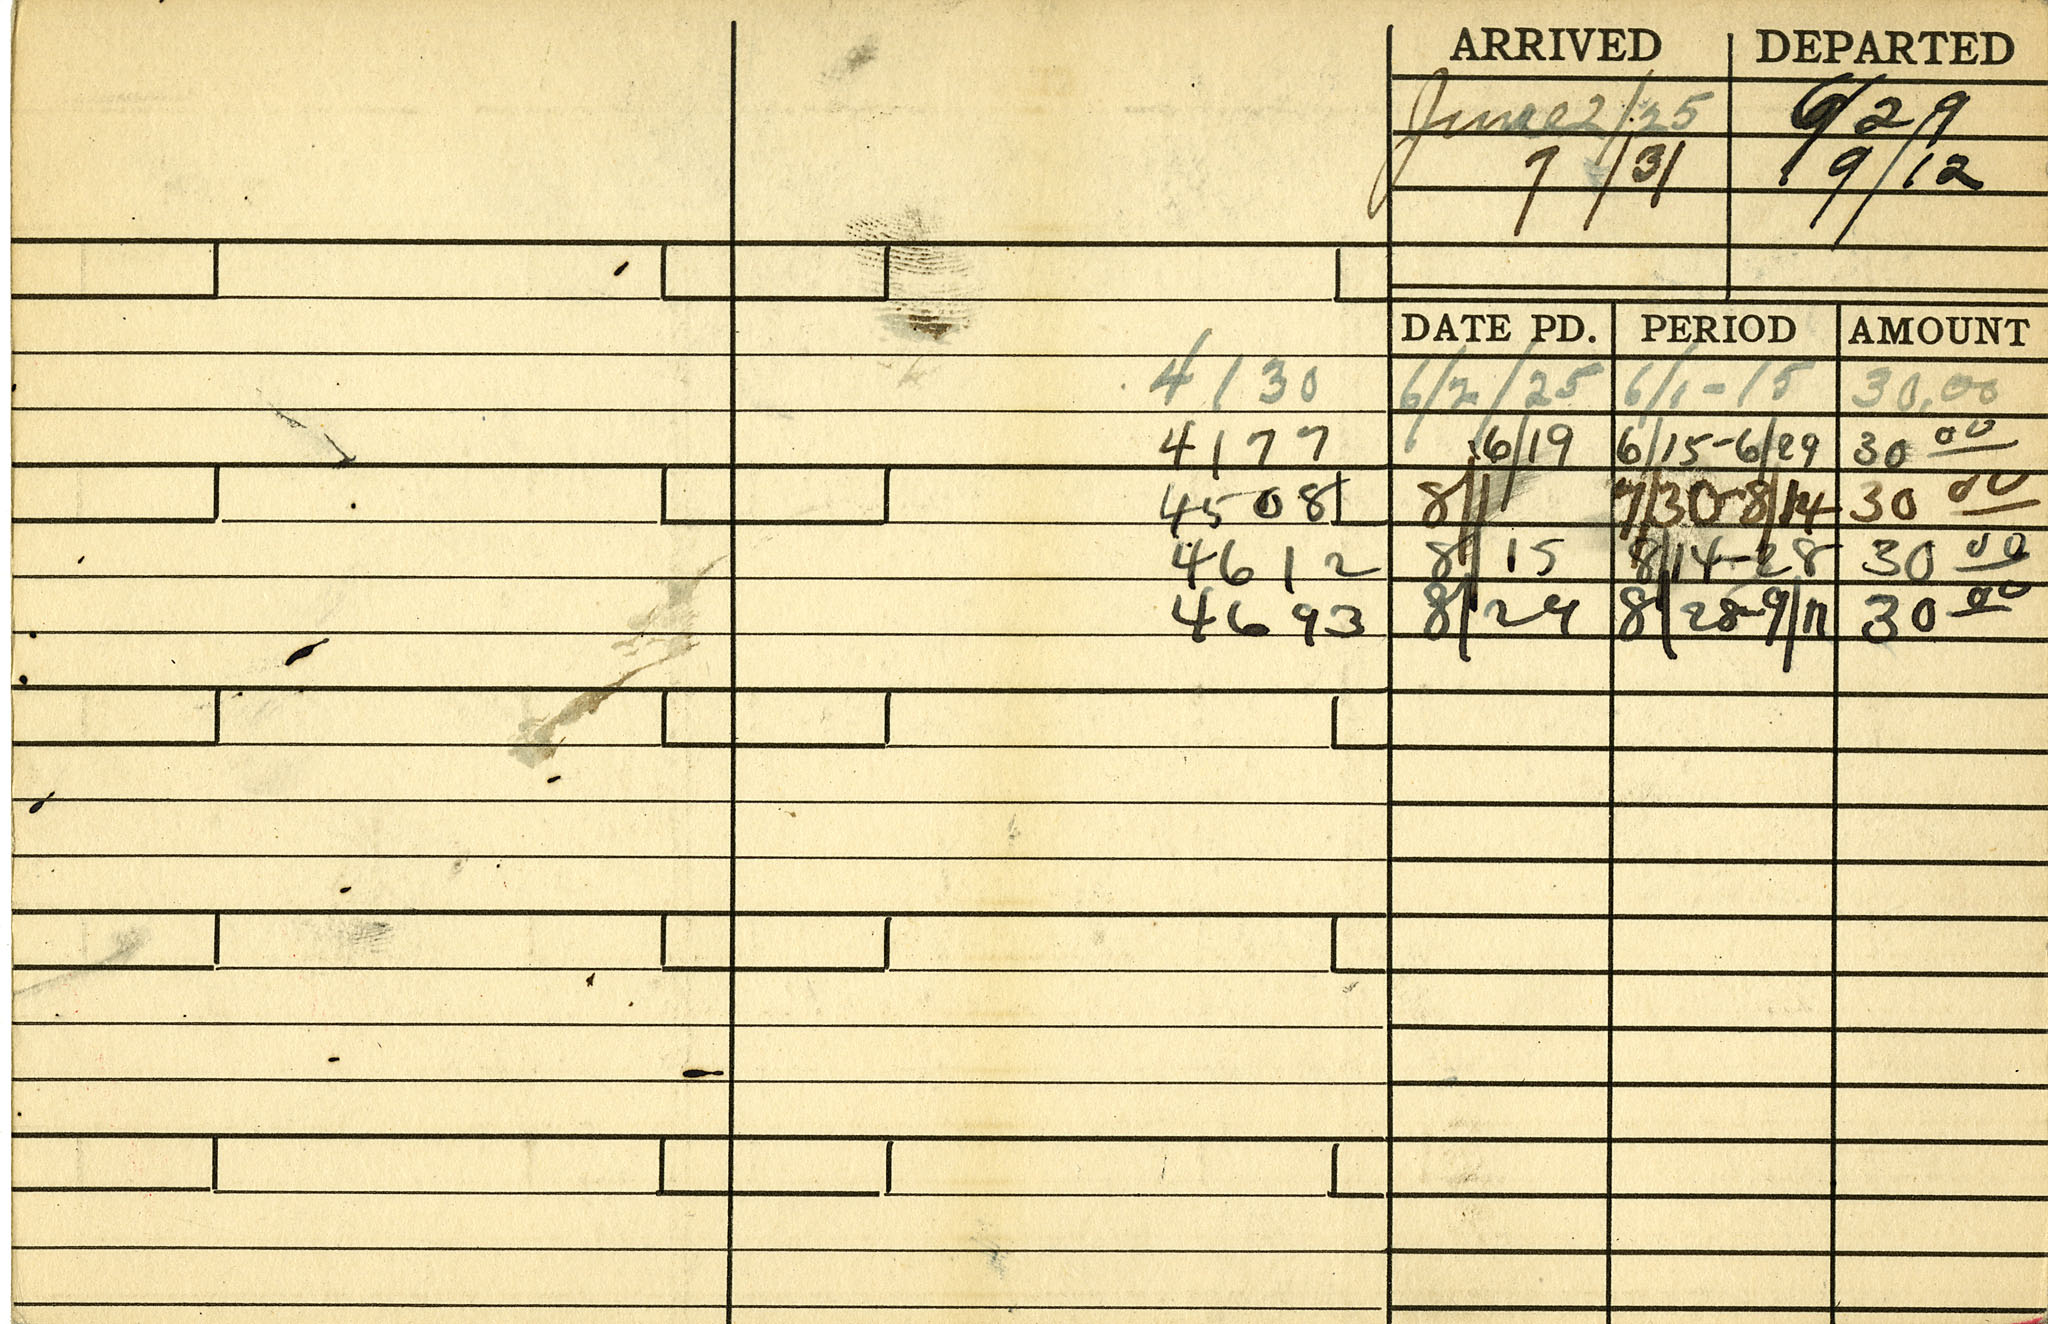 ARRIVED DEPARTED
June 2/25 6/29
7/31 9/12
DATE PD. PERIOD AMOUNT
4130 6/2/25 6/1-15 30.00
4177 6/19 6/15-6/29 30 00
4508 8/1 7/30-8/14 30 00
4612 8/15 8/14-28 30 00
4693 8/29 8/28-9/11 30 00